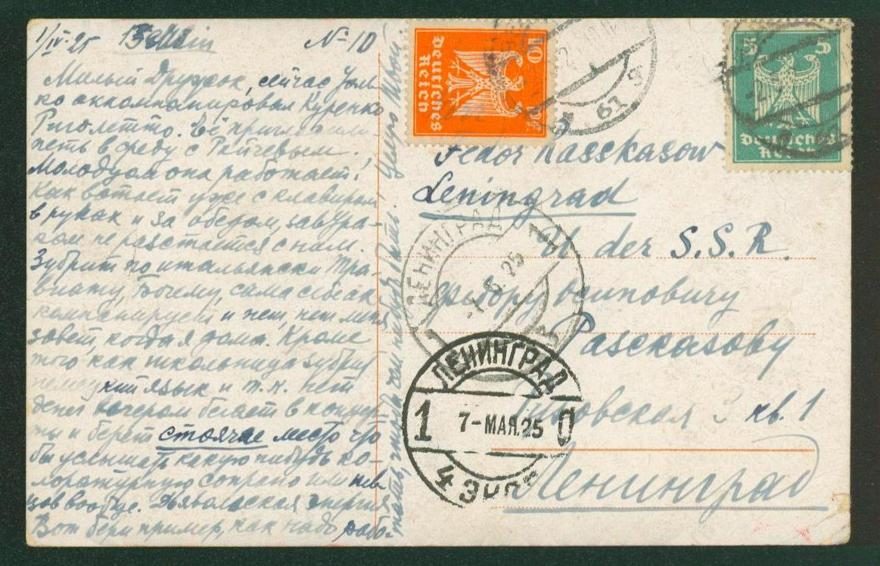 1/IV-25 Berlin № 10
Милый Дружок, сейчас толь-
ко аккомпанировал Куренко
Риголетто. Её пригласили
петь в среду с Райчевым.
Молодуам она работает!
Как встает уже с клавиром
в руках и за обедом, завтра-
ком не расстается с ним.
Зубрит по итальянски Тра-
виату, Богему, сама себе ак
компанирует и поет, чем меня
зовет, когда я дома. Кроме
того как школьница зубрит
немецкий язык и т.к. нет
денег вечером бегает в концер-
ты и берет стоячее место что
бы услышать какую нибудь ко-
лоратурную сопрано или пев-
цов вообще. Дьявольская энергия
Вот бери пример, как надо рабо-
тать, чтобы чем нибудь быть! Целую Твой
10 10
Deutsches
Reich
5 5
Deutsches
Reich
61
Fedor Rasskasow
Leningrad
U der S.S.R.
Федору Осиповичу
Рассказову
3 кв. 1
Ленинград
ЛЕНИНГРАД
-7.5.25
ЛЕНИНГРАД
1 7-МАЯ.25 0
4 ЭКСП